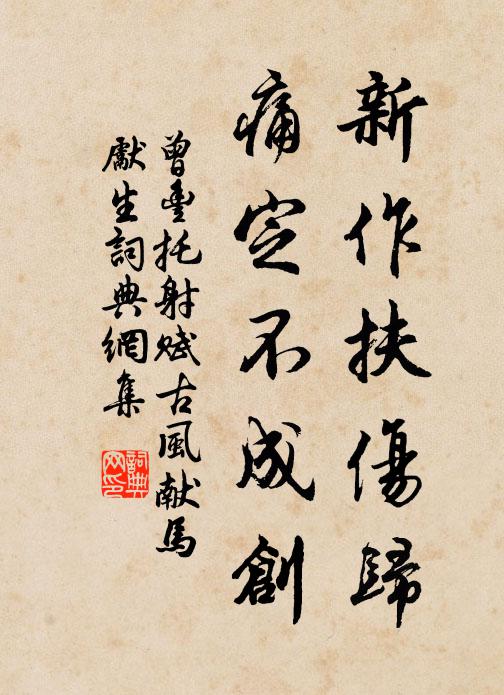 新作扶傷歸
痛定不成創
曾豊托射赋古風献馬
獻生詞典網集
詞典
网印